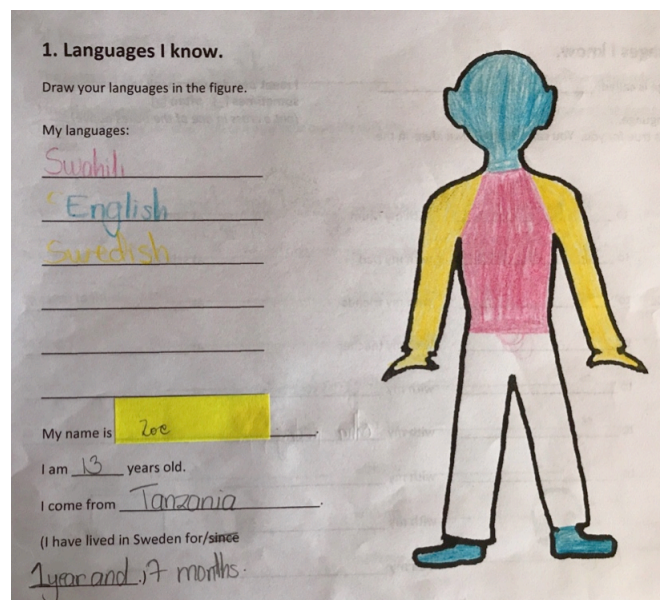 1. Languages I know.
Draw your languages in the figure.
My languages:
Swahili
English
Swedish
My name is Zoe
I am 13 years old.
I come from Tanzania.
(I have lived in Sweden for/since
1year and ,7 months.